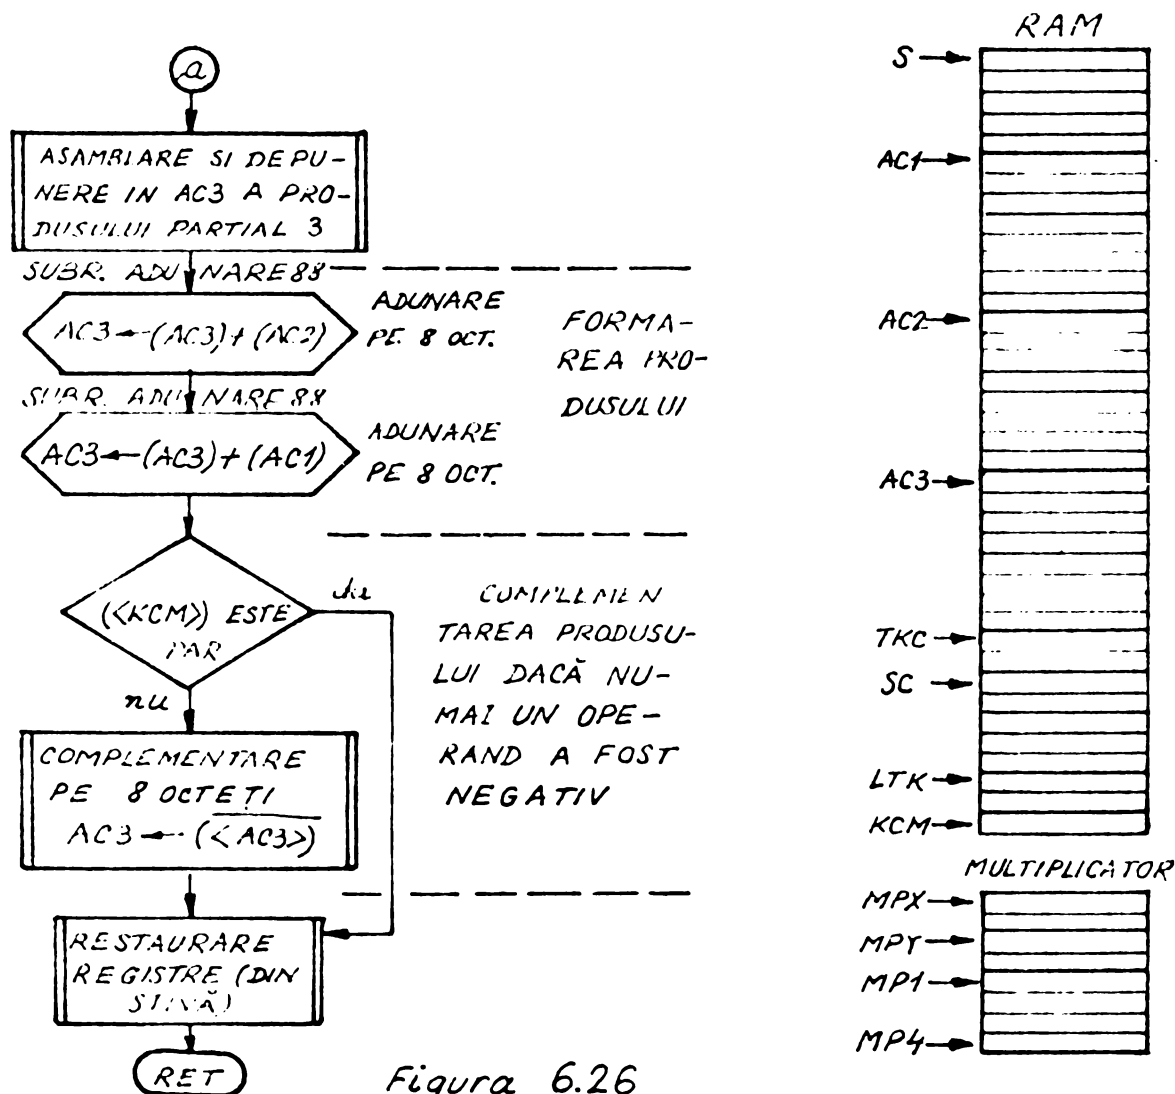 a
ASAMBLARE SI DEPU-
NERE IN AC3 A PRO-
DUSULUI PARTIAL 3
SUBR. ADUNARE88
AC3 ← (AC3) + (AC2)
ADUNARE
PE 8 OCT.
SUBR. ADUNARE88
AC3 ← (AC3) + (AC1)
ADUNARE
PE 8 OCT.
FORMA-
REA PRO-
DUSULUI
(<KCM>) ESTE
PAR
da
nu
COMPLEMEN
TAREA PRODUSU-
LUI DACĂ NU-
MAI UN OPE-
RAND A FOST
NEGATIV
COMPLEMENTARE
PE 8 OCTEȚI
AC3 ← (<AC3>)
RESTAURARE
REGISTRE (DIN
STIVĂ)
RET
Figura 6.26
RAM
S
AC1
AC2
AC3
TKC
SC
LTK
KCM
MULTIPLICATOR
MPX
MPY
MP1
MP4